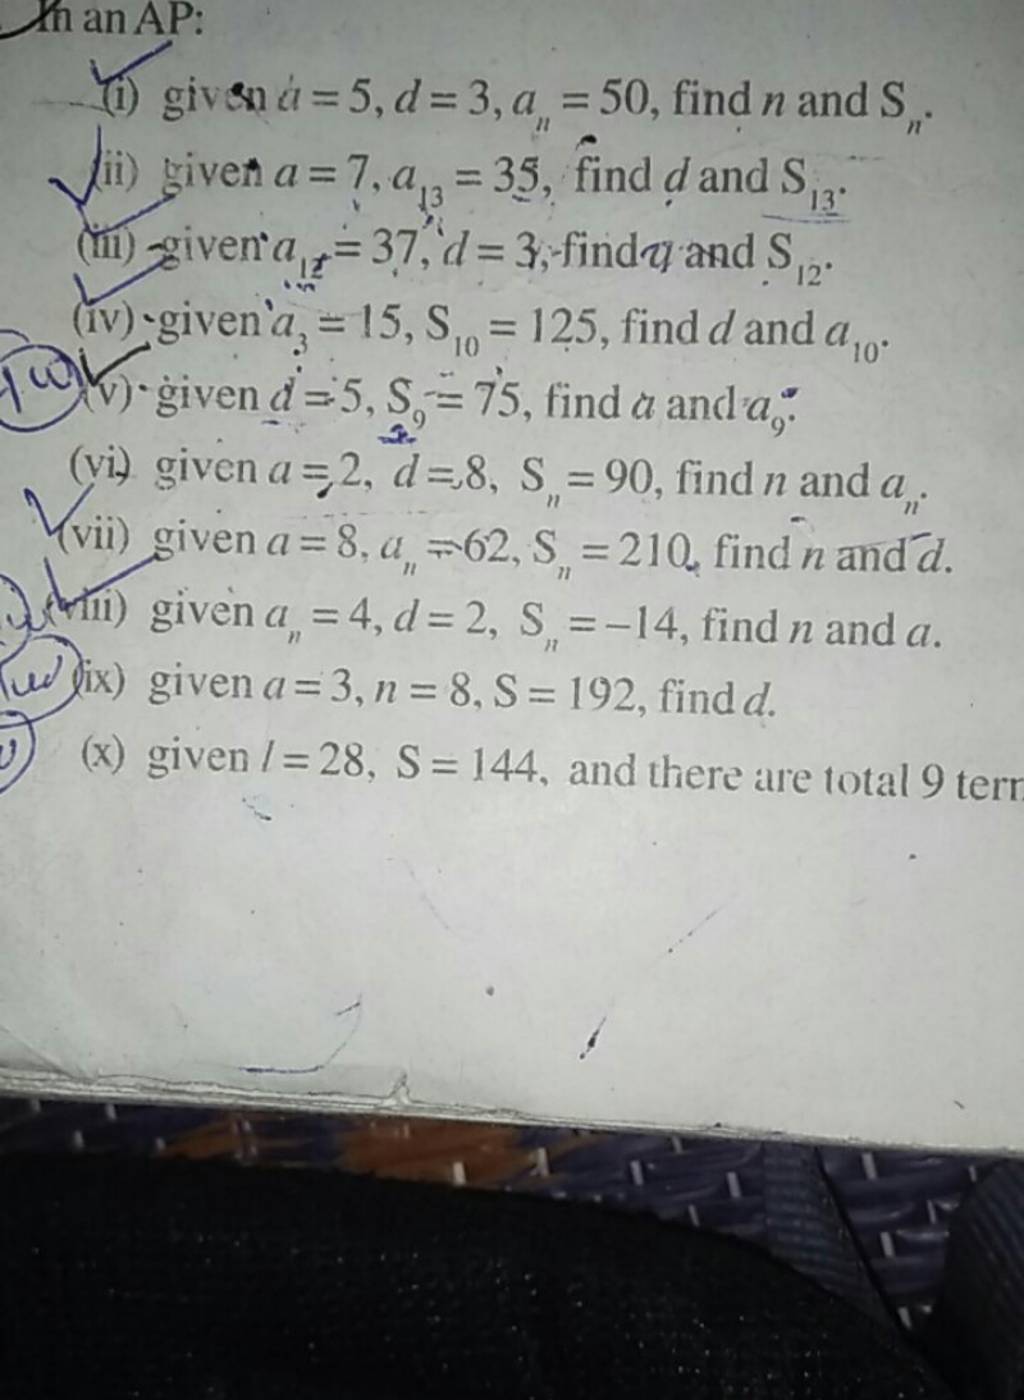 In an AP:
(i) given a = 5, d = 3, aₙ = 50, find n and Sₙ.
(ii) given a = 7, a₁₃ = 35, find d and S₁₃.
(iii) given a₁₂ = 37, d = 3, find a and S₁₂.
(iv) given a₃ = 15, S₁₀ = 125, find d and a₁₀.
(v) given d = 5, S₉ = 75, find a and a₉.
(vi) given a = 2, d = 8, Sₙ = 90, find n and aₙ.
(vii) given a = 8, aₙ = 62, Sₙ = 210, find n and d.
(viii) given aₙ = 4, d = 2, Sₙ = –14, find n and a.
(ix) given a = 3, n = 8, S = 192, find d.
(x) given l = 28, S = 144, and there are total 9